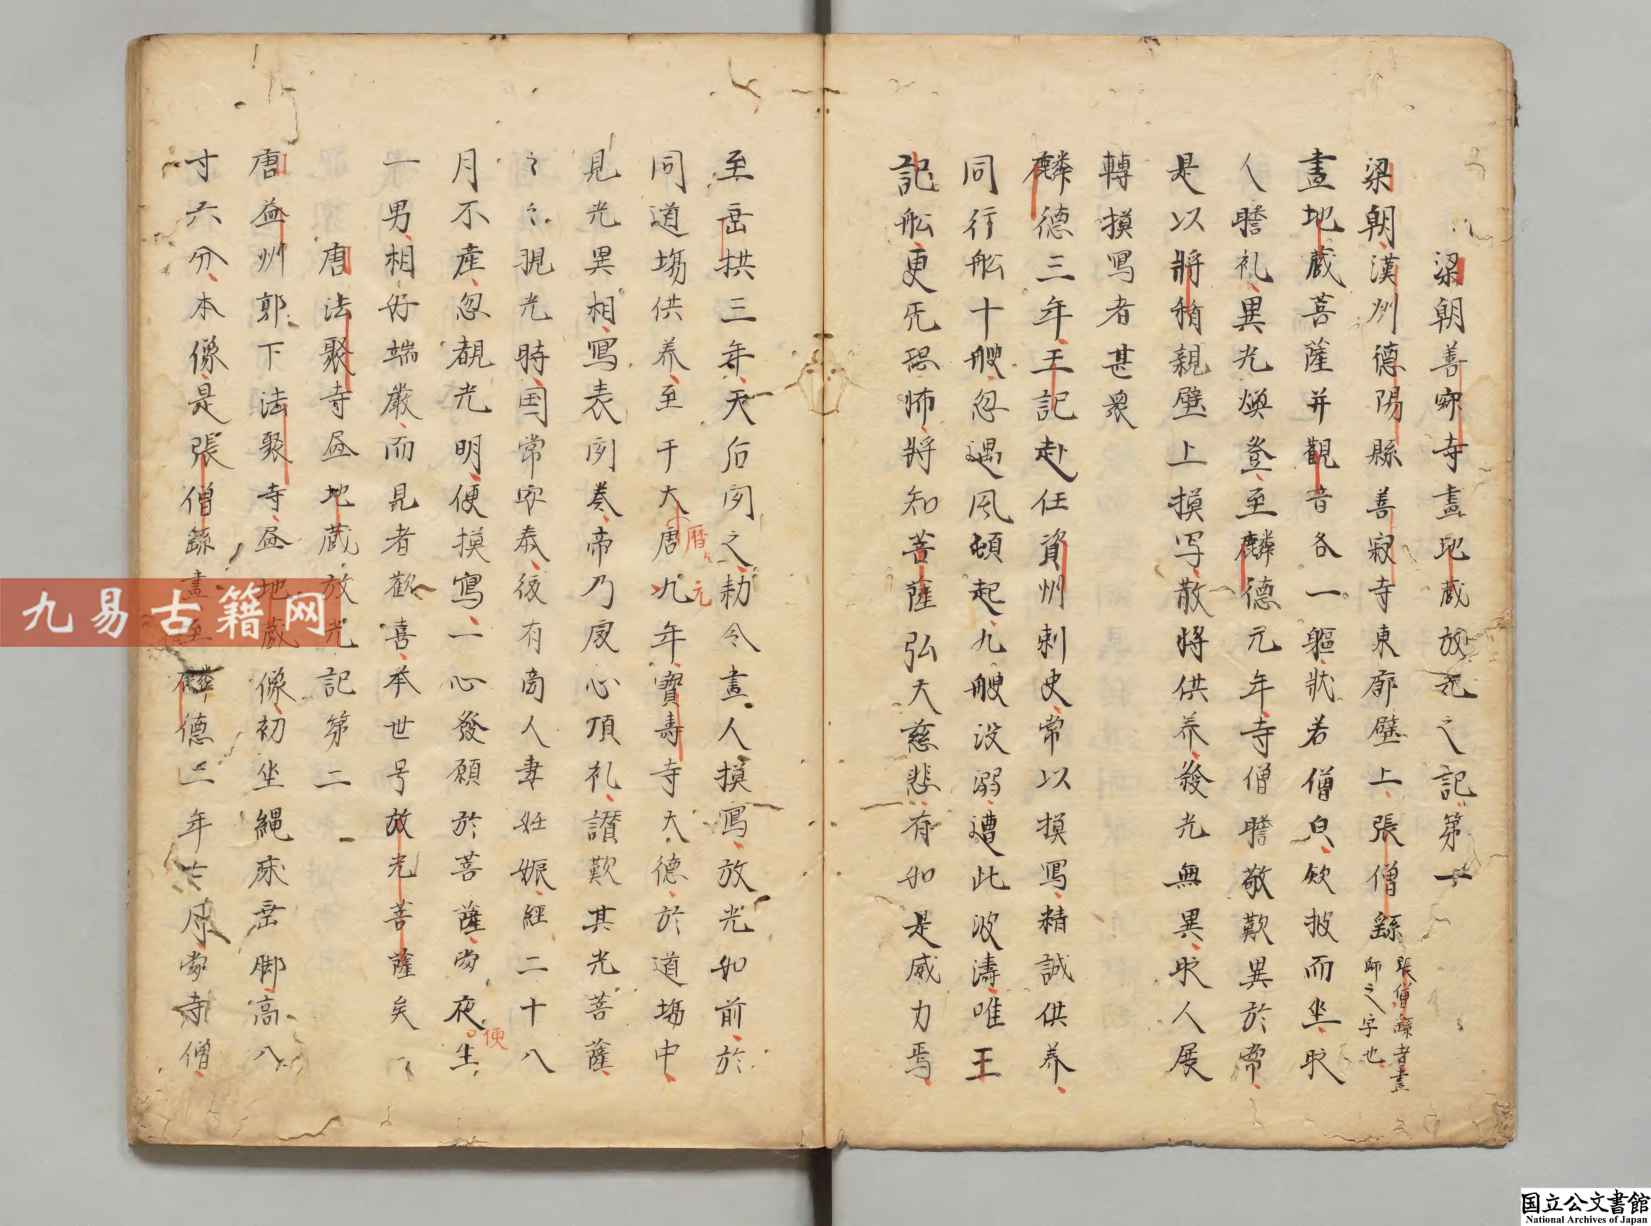 梁朝善寂寺畫地蔵放光之記第一
梁朝漢州德陽縣善寂寺東廊壁上張僧繇
張僧繇者畫
師之字也
畫地蔵菩薩并觀音各一軀狀若僧皃欽披而坐時
人瞻礼異光煥發至麟德元年寺僧瞻敬歎異於常
是以將稍親壁上摸写散将供养發光無異時人展
轉摸寫者甚衆
麟德三年王記赴任資州刺史常以摸寫精誠供养
同行舩十艘忽遇風頓起九艘没溺遭此波濤唯王
記舩更无恐怖將知菩薩弘大慈悲有如是威力焉
至岳拱三年天后聞之勅令畫人摸寫放光如前於
同道場供养至于大唐九年寳寿寺大德於道場中
暦
元
見光異相寫表聞奏帝乃虔心頂礼讃歎其光菩薩
々々現光時国常安泰後有商人妻妊娠經二十八
月不產忽覩光明便摸寫一心發願於菩薩當夜生
便
一男相好端嚴而見者歡喜本世号放光菩薩矣
唐法聚寺畫地蔵放光記第二
唐益州郭下法聚寺畫地蔵像初坐繩床岳脚高八
寸六分本像是張僧繇畫至麟德二年七月當寺僧
九易古籍网
国立公文書館
National Archives of Japan